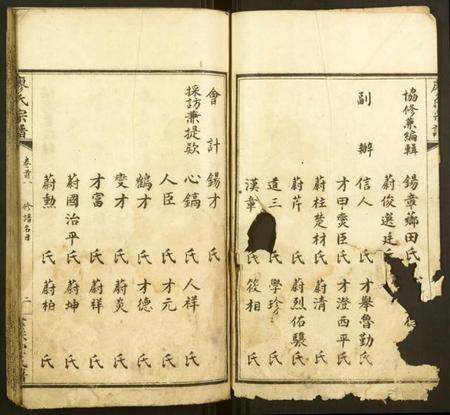 協修兼編輯 錫章薌田氏
蔚俊選廷氏
副辦 信人氏 才舉魯勤氏
才甲 臣氏 才澄西平氏
蔚柱楚材氏 蔚清氏
蔚芹氏 蔚烈佑驥氏
道三氏 學珍氏
漢章 筱相氏
會計 錫才氏
採訪兼提欵 心鎬氏 人祥氏
人臣氏 才元氏
鶴才氏 才德氏
燮才氏 蔚炎氏
才富氏 蔚祥氏
蔚國治平氏 蔚坤氏
蔚勲氏 蔚柏氏
廖氏宗譜 卷首八 修譜名目 二